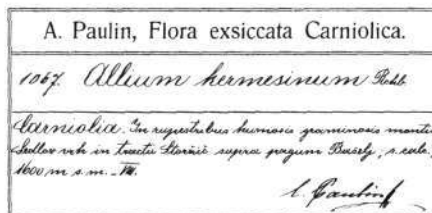 A. Paulin, Flora exsiccata Carniolica.
1067. Allium kermesinum Rchb.
Carniolia. In rupestribus humosis graminosis montis
vrh in tractu Storžič supra pagum Bašelj, s. calc.,
1600 m s. m. _ VII.
A. Paulin